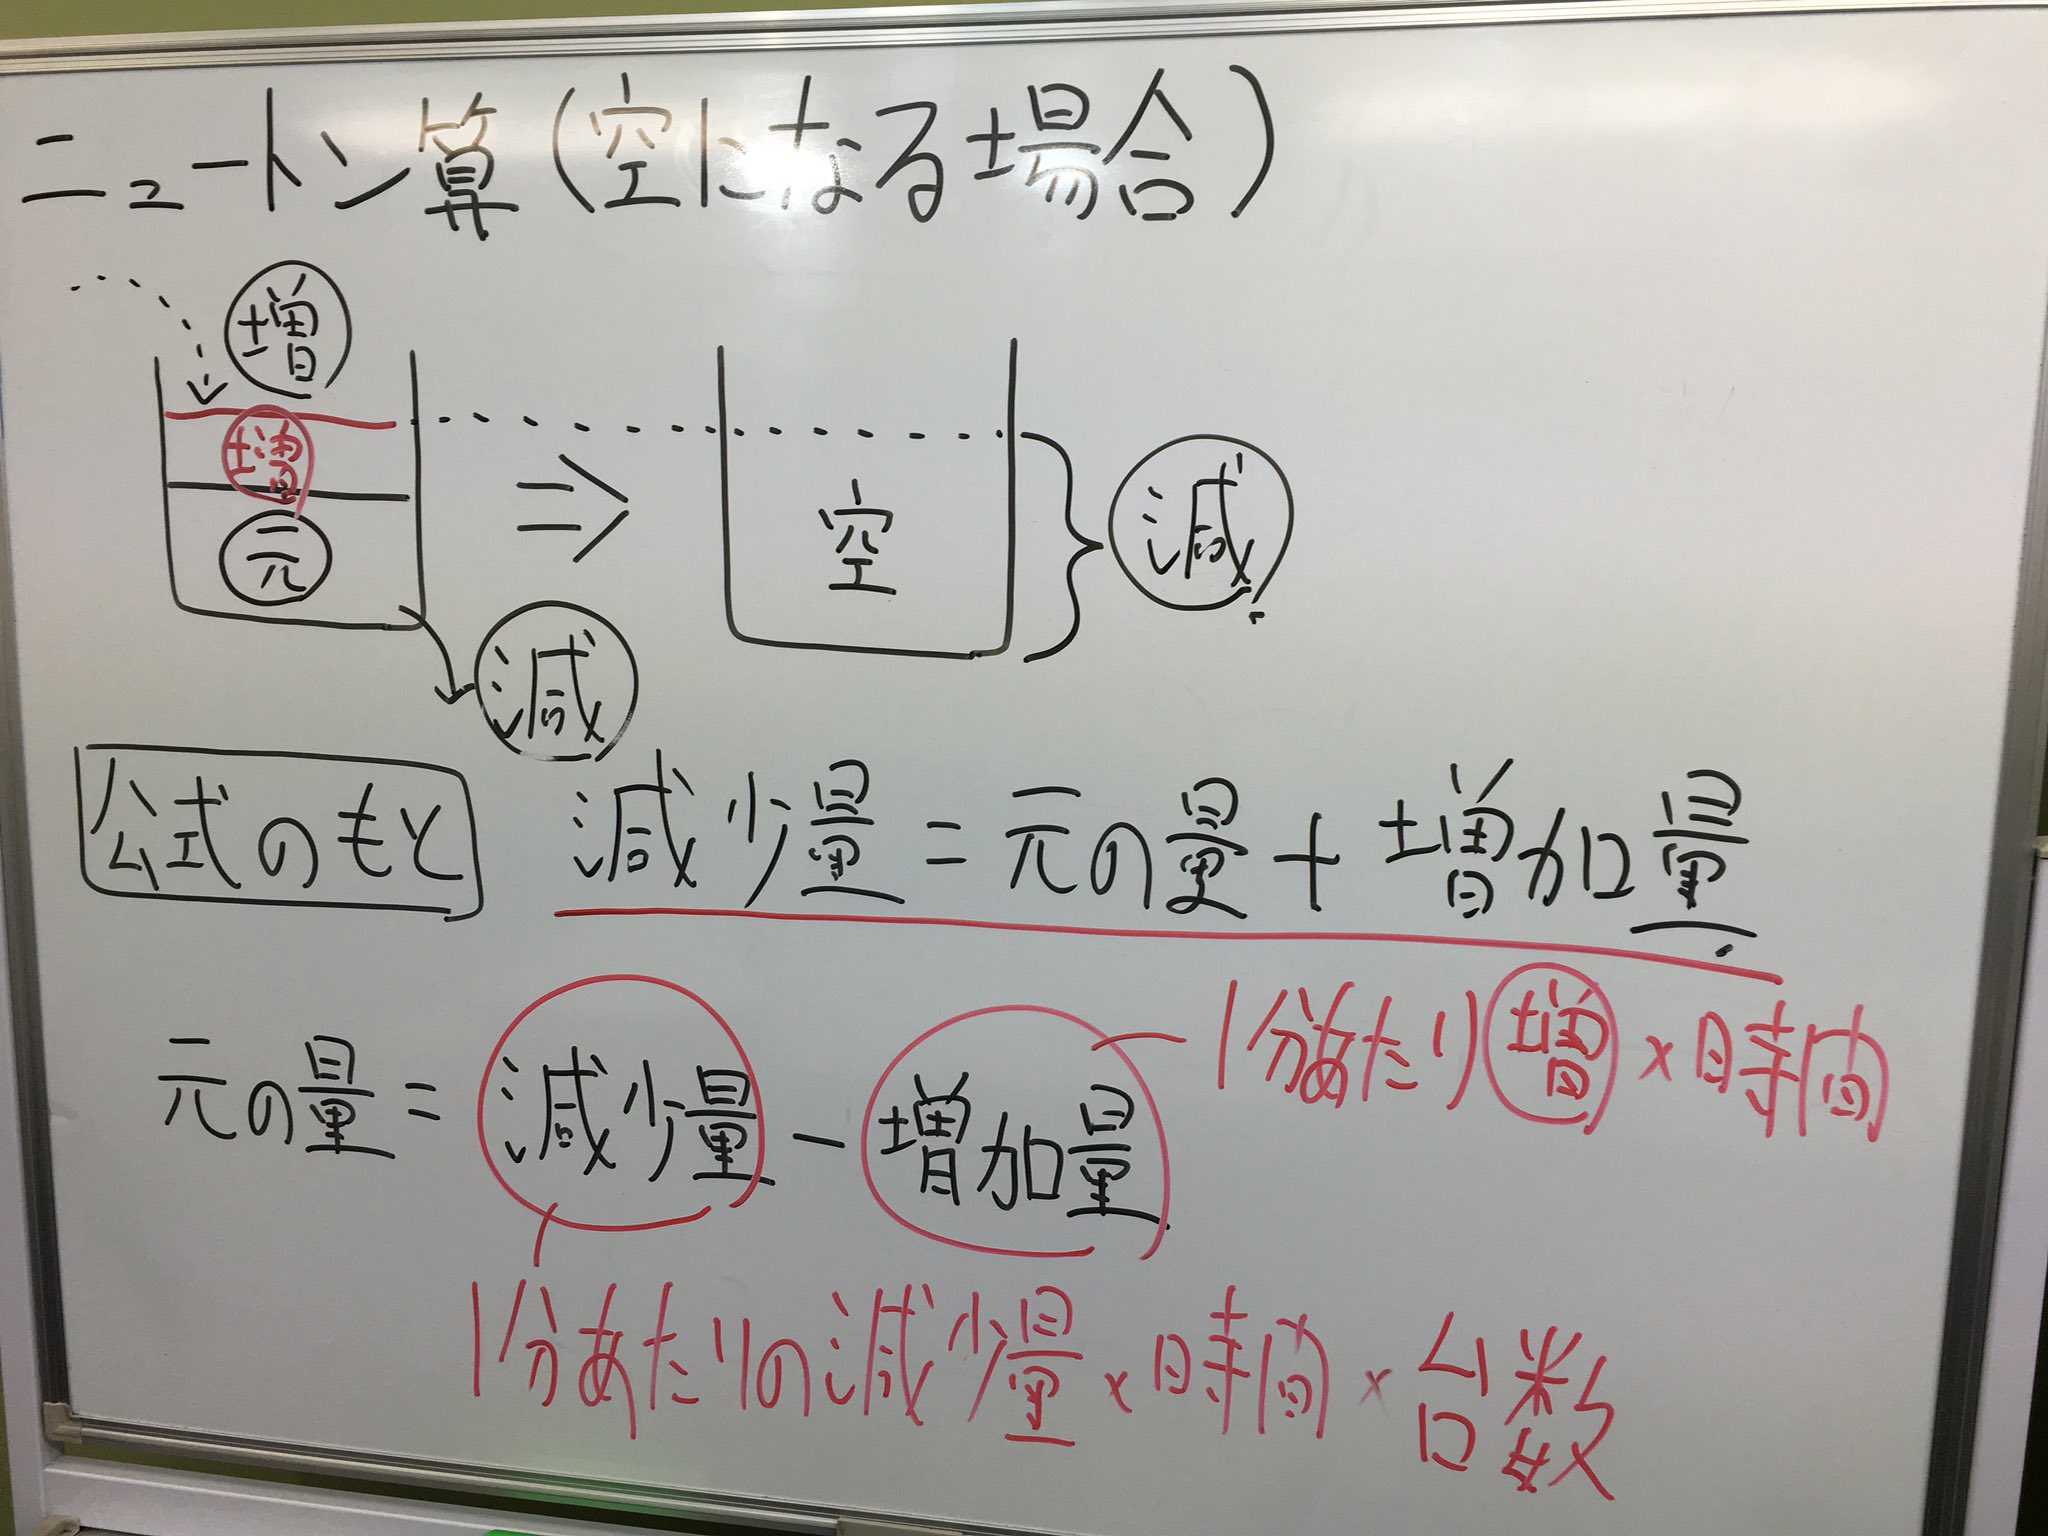 ニュートン算(空になる場合)
増
増
元
減
空
減
公式のもと
減少量=元の量+増加量
元の量=減少量-増加量
1分あたり増×時間
1分あたりの減少量×時間×台数